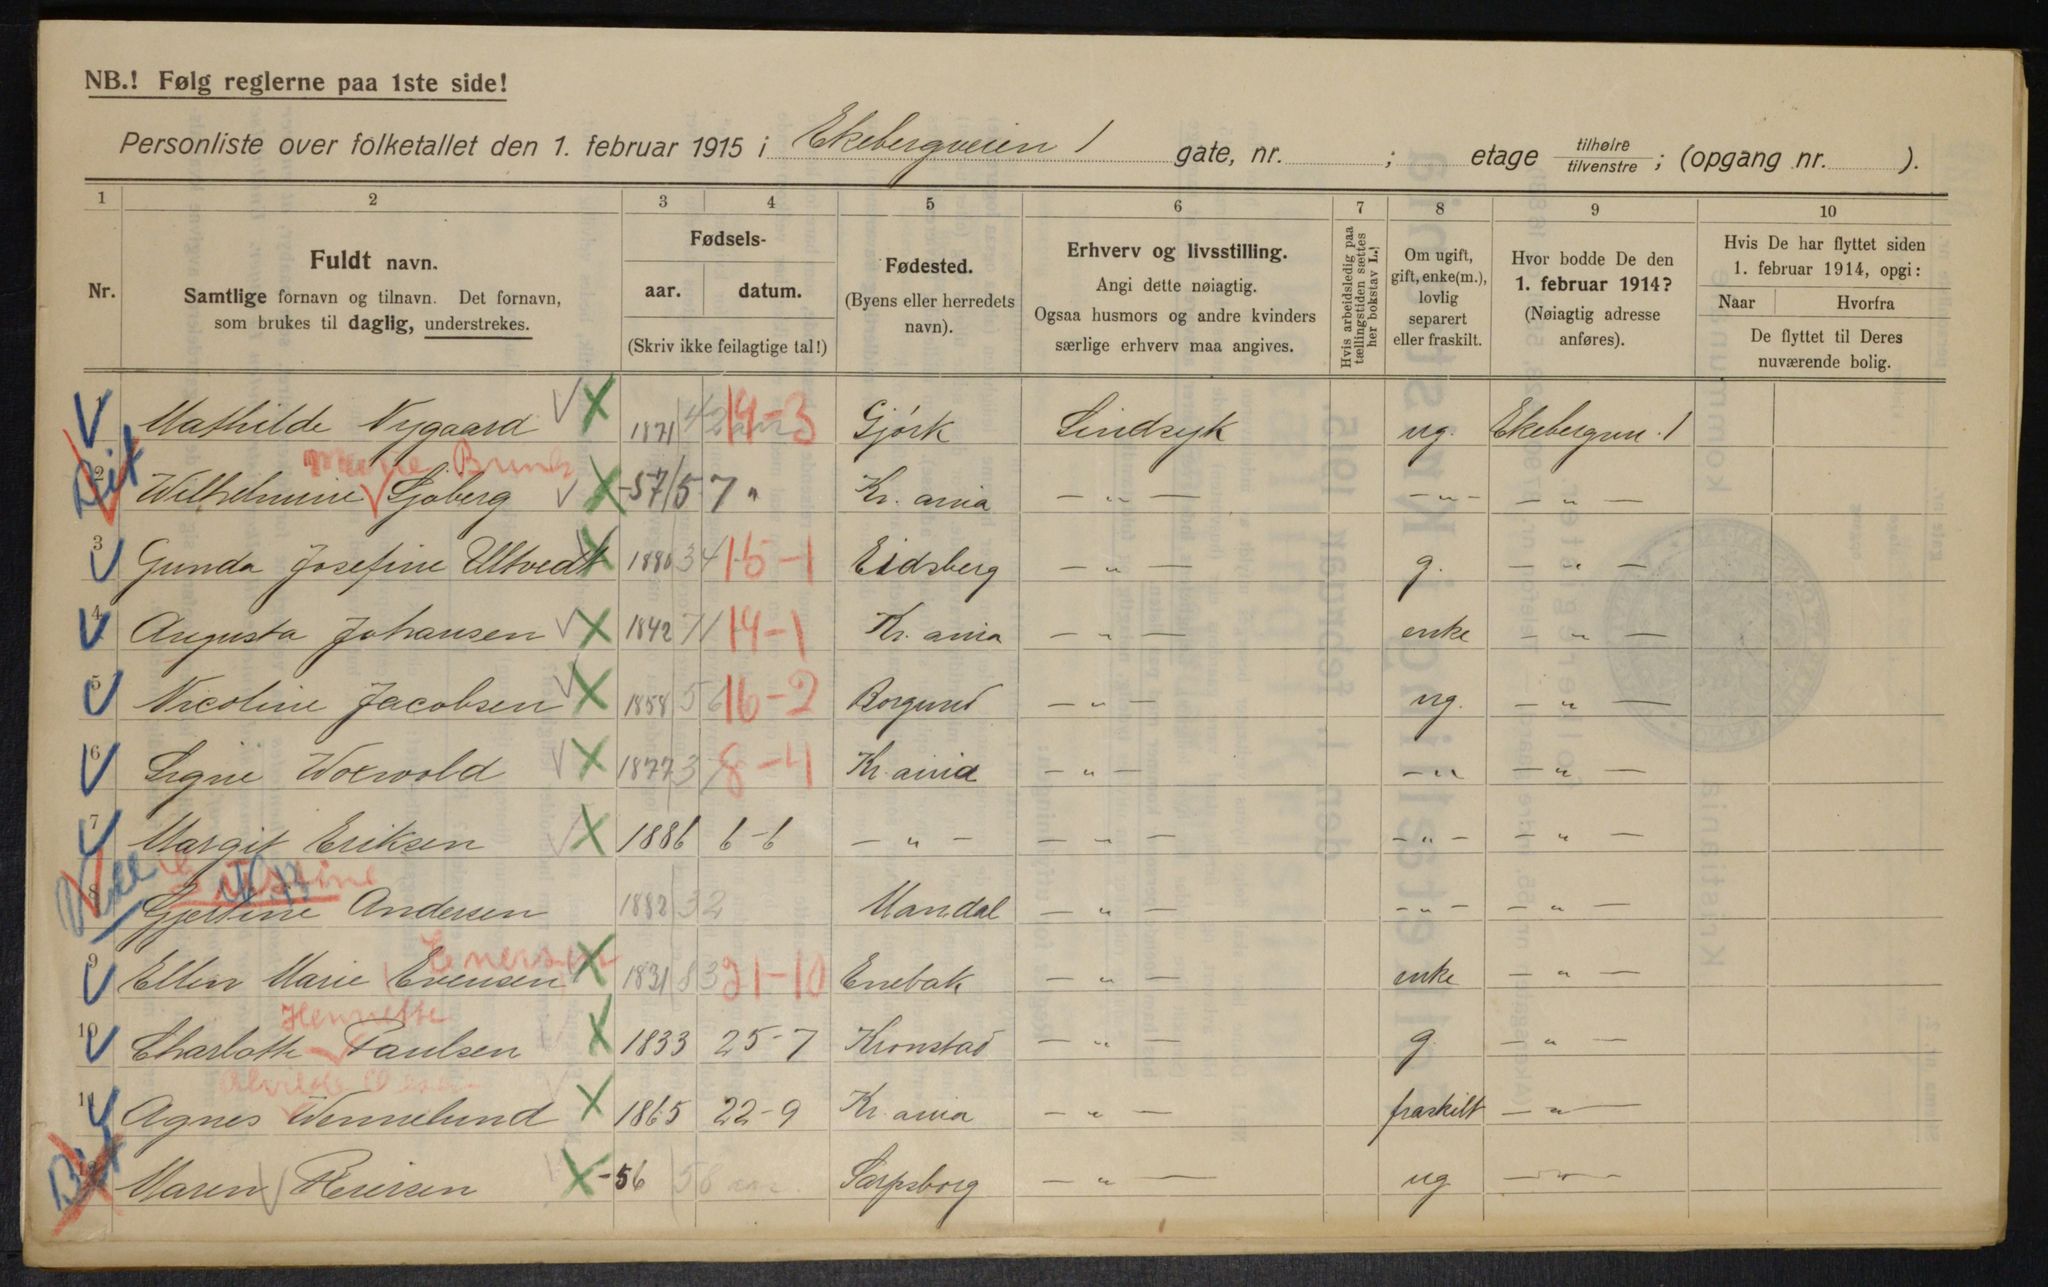 NB.! Følg reglerne paa 1ste side!
Personliste over folketallet den 1. februar 1915 i Ekebergveien 1 gate, nr. ; etage tilhøire/tilvenstre ; (opgang nr. ).
1 2 3 4 5 6 7 8 9 10
Nr.
Fuldt navn.
Samtlige fornavn og tilnavn. Det fornavn,
som brukes til daglig, understrekes.
Fødsels-
aar. datum.
(Skriv ikke feilagtige tal!)
Fødested.
(Byens eller herredets
navn).
Erhverv og livsstilling.
Angi dette nøiagtig.
Ogsaa husmors og andre kvinders
særlige erhverv maa angives.
Hvis arbeidsledig paa
tællingstiden sættes
her bokstav L.!
Om ugift,
gift, enke(m.),
lovlig
separert
eller fraskilt.
Hvor bodde De den
1. februar 1914?
(Nøiagtig adresse
anføres).
Hvis De har flyttet siden
1. februar 1914, opgi:
Naar Hvorfra
De flyttet til Deres
nuværende bolig.
1 Mathilde Nygaard 1871 42 14-3 Gjørk Sindsyk ug. Ekebergvn. 1
Marie
2 Wilhelmine Sjøberg -57 57 " Kr.ania — " — — " — — " —
3 Gunda Josefine Ultvedt 1880 34 15-1 Eidsberg — " — g. — " —
4 Augusta Johansen 1842 71 14-1 Kr.ania — " — enke — " —
5 Nicoline Jacobsen 1858 56 16-2 Borgund — " — ug. — " —
6 Signe 1877 37 8-4 Kr.ania — " — — " — — " —
7 Margit Eriksen 1886 6-6 — " — — " — — " — — " —
8 Gjertine Andersen 1882 32 Mandal — " — — " — — " —
Enersen
9 Ellen Marie Evensen 1831 83 21-10 Enebak — " — enke — " —
Henriette
10 Charlotte Paulsen 1833 25-7 Kronstad — " — g. — " —
Alvilde
11 Agnes Wennelund 1865 22-9 Kr.ania — " — fraskilt — " —
12 Maren Reiersen -56 58 Sarpsborg — " — ug — " —